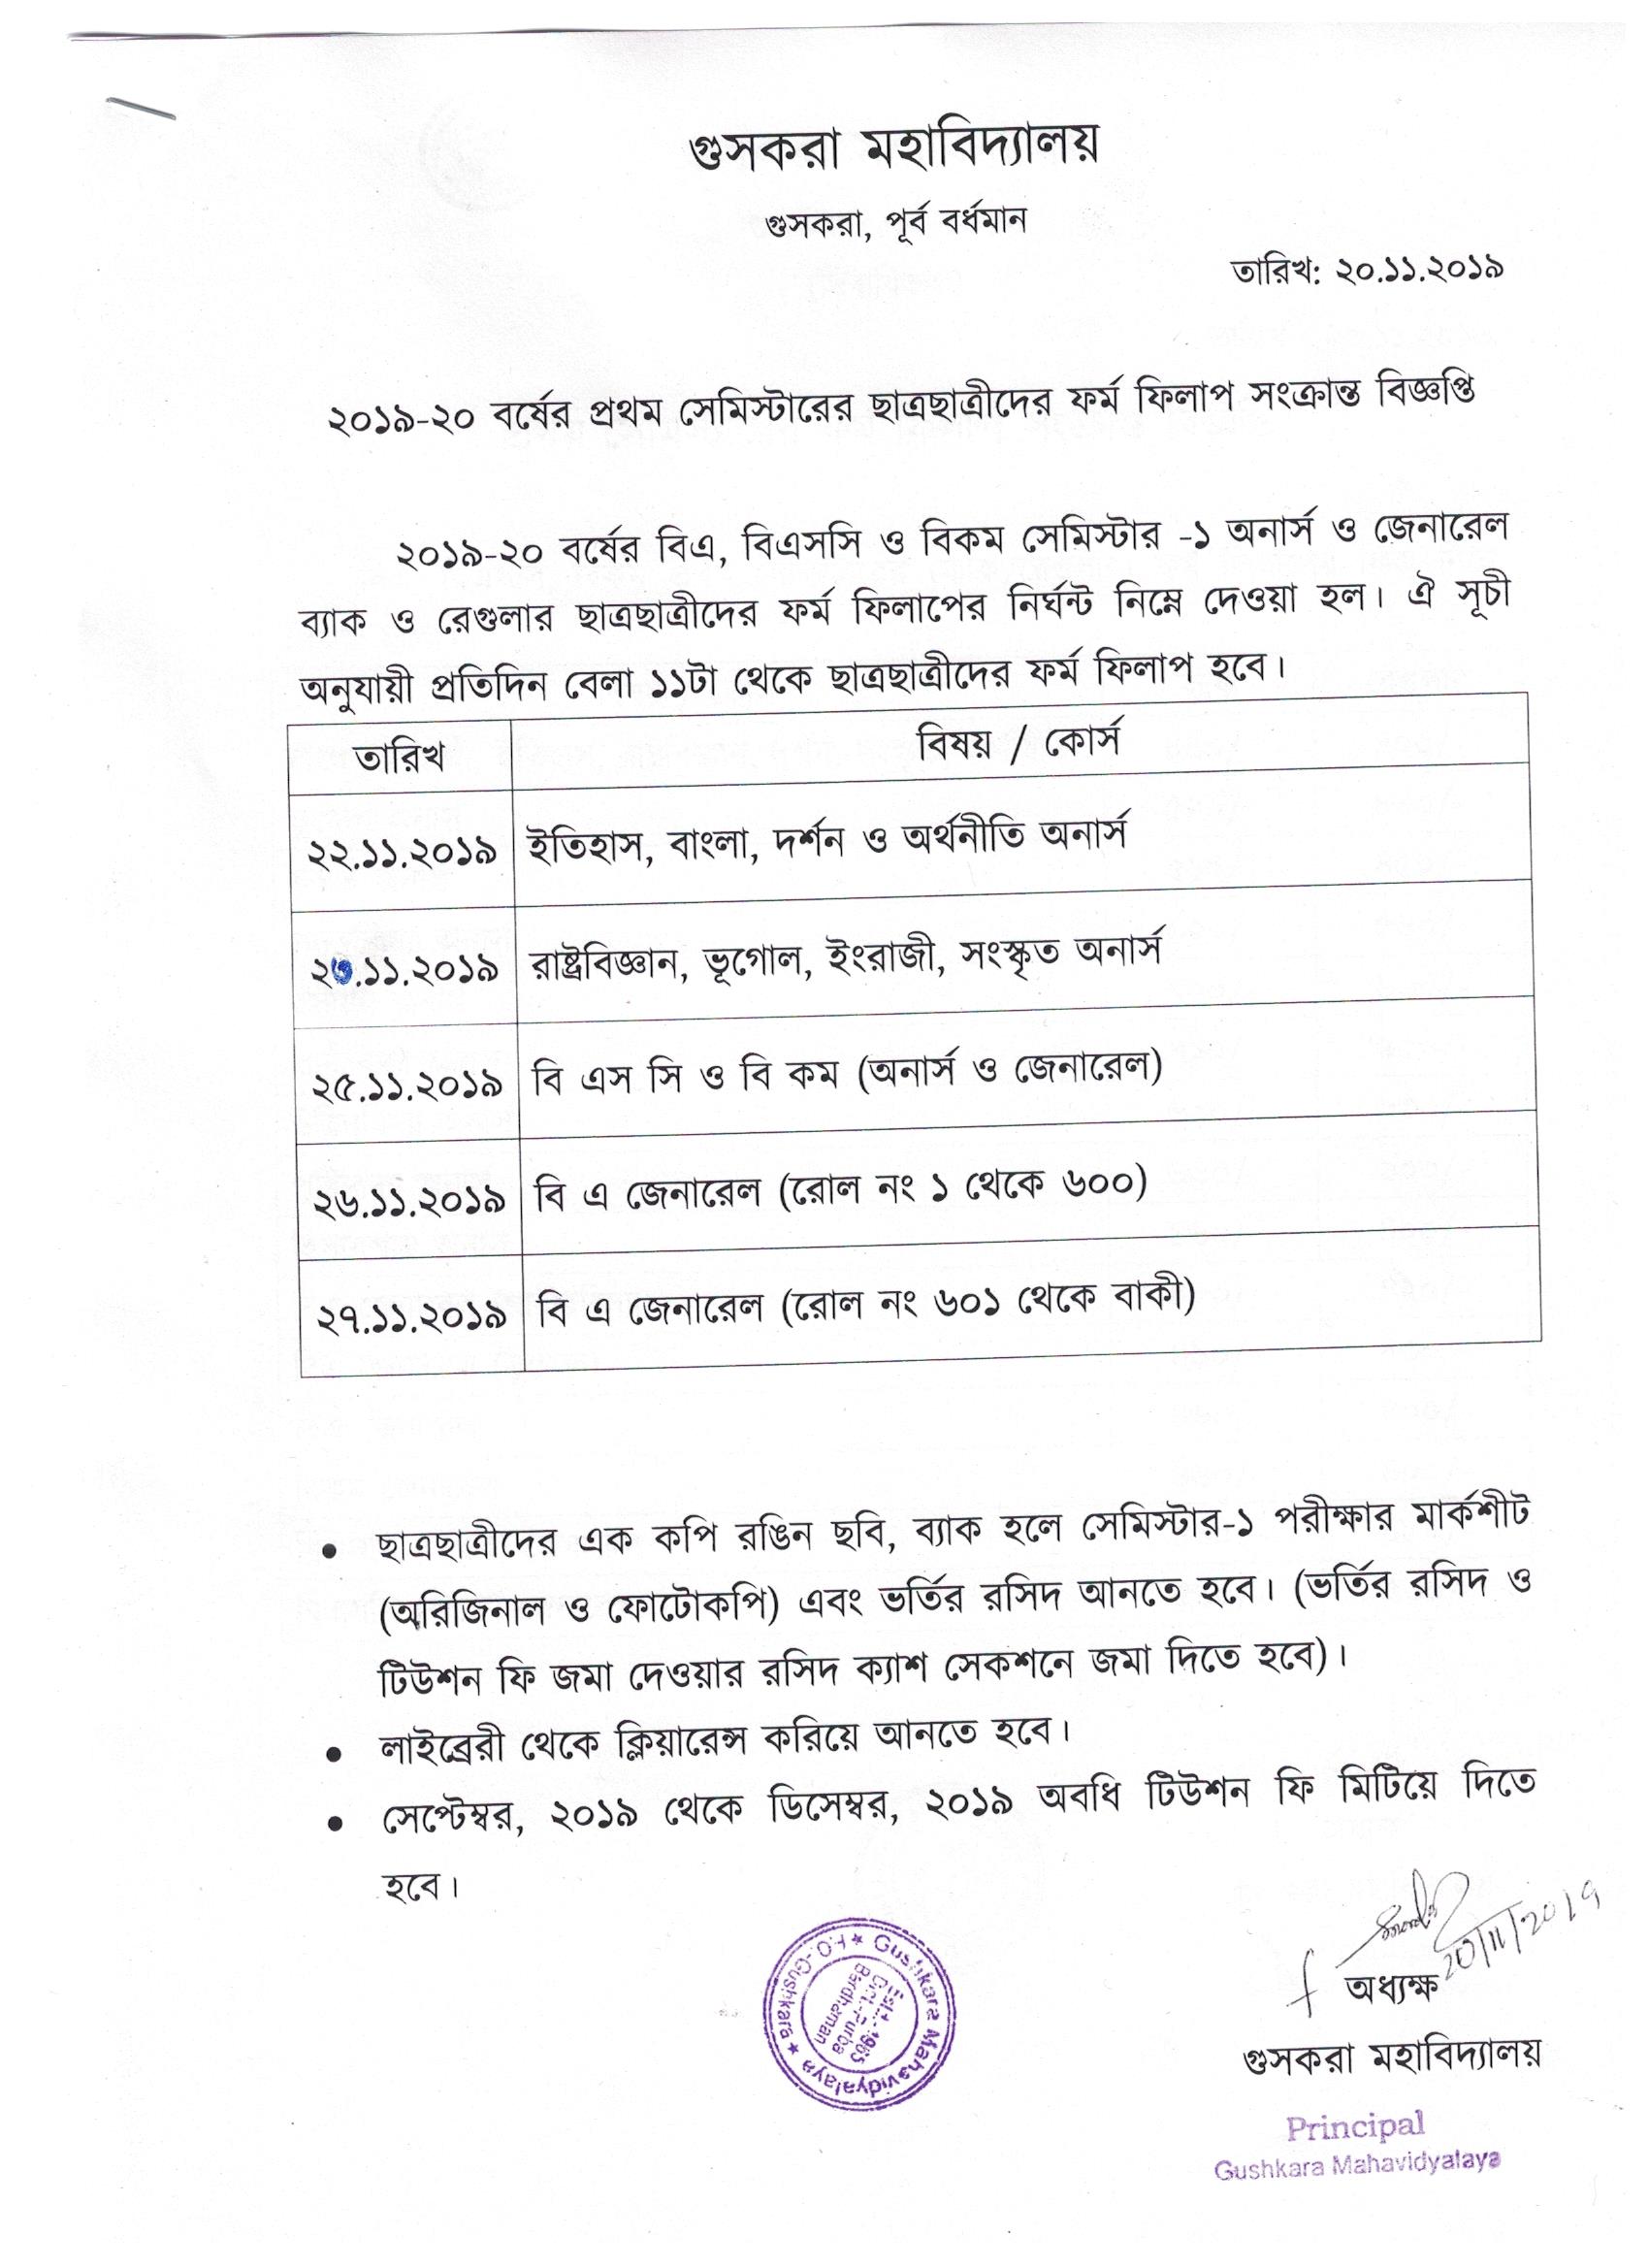 গুসকরা মহাবিদ্যালয়
গুসকরা, পূর্ব বর্ধমান
তারিখ: ২০.১১.২০১৯
২০১৯-২০ বর্ষের প্রথম সেমিস্টারের ছাত্রছাত্রীদের ফর্ম ফিলাপ সংক্রান্ত বিজ্ঞপ্তি
২০১৯-২০ বর্ষের বিএ, বিএসসি ও বিকম সেমিস্টার -১ অনার্স ও জেনারেল
ব্যাক ও রেগুলার ছাত্রছাত্রীদের ফর্ম ফিলাপের নির্ঘন্ট নিম্নে দেওয়া হল। ঐ সূচী
অনুযায়ী প্রতিদিন বেলা ১১টা থেকে ছাত্রছাত্রীদের ফর্ম ফিলাপ হবে।
তারিখ বিষয় / কোর্স
২২.১১.২০১৯ ইতিহাস, বাংলা, দর্শন ও অর্থনীতি অনার্স
২৩.১১.২০১৯ রাষ্ট্রবিজ্ঞান, ভূগোল, ইংরাজী, সংস্কৃত অনার্স
২৫.১১.২০১৯ বি এস সি ও বি কম (অনার্স ও জেনারেল)
২৬.১১.২০১৯ বি এ জেনারেল (রোল নং ১ থেকে ৬০০)
২৭.১১.২০১৯ বি এ জেনারেল (রোল নং ৬০১ থেকে বাকী)
• ছাত্রছাত্রীদের এক কপি রঙিন ছবি, ব্যাক হলে সেমিস্টার-১ পরীক্ষার মার্কশীট
(অরিজিনাল ও ফোটোকপি) এবং ভর্তির রসিদ আনতে হবে। (ভর্তির রসিদ ও
টিউশন ফি জমা দেওয়ার রসিদ ক্যাশ সেকশনে জমা দিতে হবে)।
• লাইব্রেরী থেকে ক্লিয়ারেন্স করিয়ে আনতে হবে।
• সেপ্টেম্বর, ২০১৯ থেকে ডিসেম্বর, ২০১৯ অবধি টিউশন ফি মিটিয়ে দিতে
হবে।
20/11/2019
অধ্যক্ষ
গুসকরা মহাবিদ্যালয়
Gushkara Mahavidyalaya ★ P.O.-Gushkara ★
Estt.-1965
Dist.-Purba
Bardhaman
Principal
Gushkara Mahavidyalaya